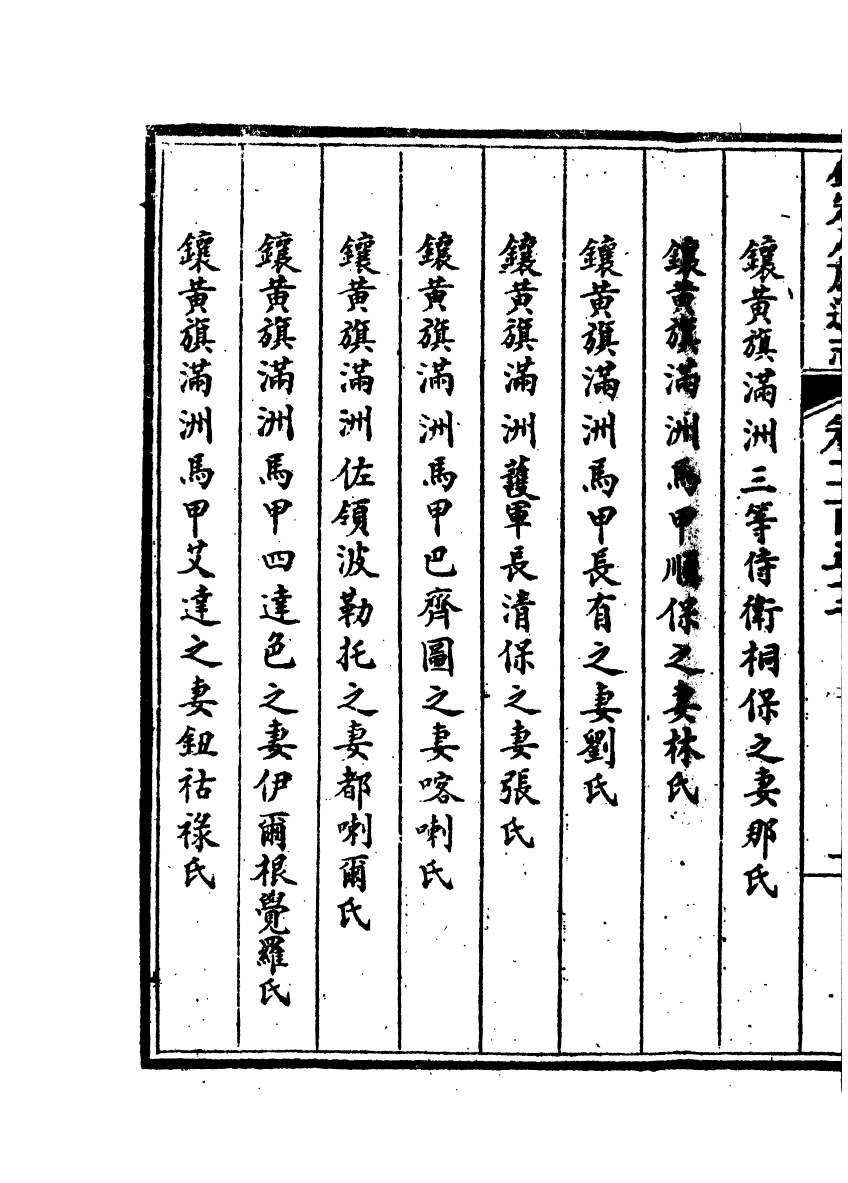 鑲黃旗滿洲三等侍衛桐保之妻那氏
鑲黃旗滿洲馬甲順保之妻林氏
鑲黃旗滿洲馬甲長有之妻劉氏
鑲黃旗滿洲護軍長清保之妻張氏
鑲黃旗滿洲馬甲巴齊圖之妻喀喇氏
鑲黃旗滿洲佐領波勒托之妻都喇爾氏
鑲黃旗滿洲馬甲四達色之妻伊爾根覺羅氏
鑲黃旗滿洲馬甲艾達之妻鈕祜祿氏